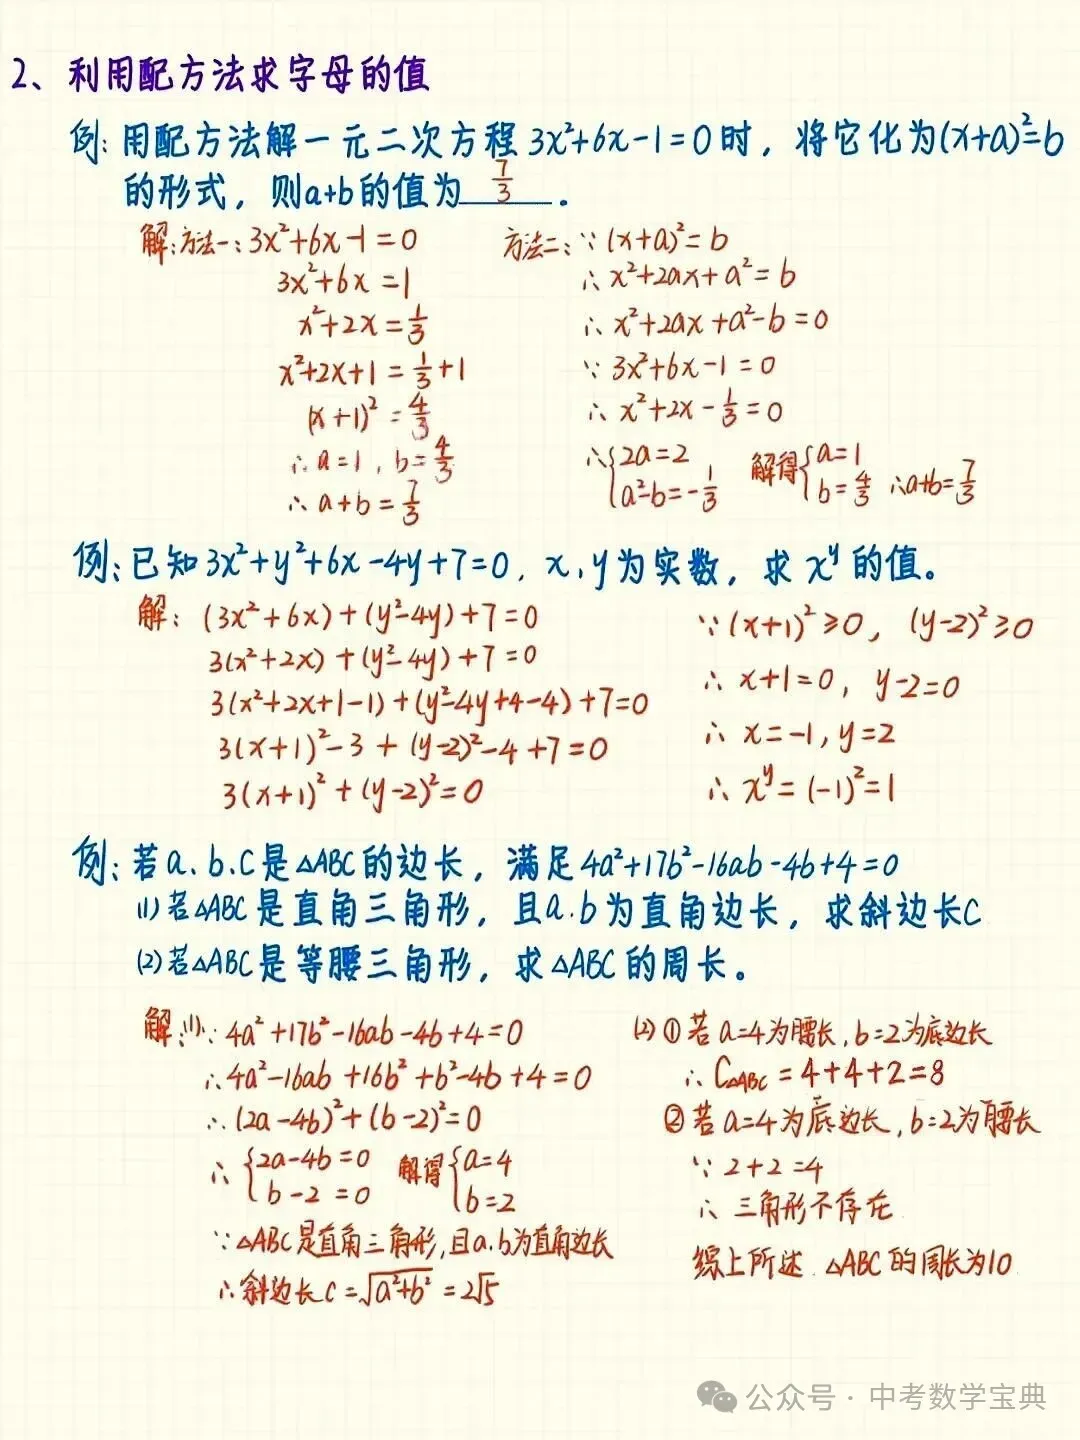 2、利用配方法求字母的值
例: 用配方法解一元二次方程 3x²+6x-1=0时，将它化为(x+a)²=b
的形式，则a+b的值为 7/3 .
解:方法一: 3x²+6x-1=0
3x²+6x=1
x²+2x=1/3
x²+2x+1=1/3+1
(x+1)²=4/3
∴a=1, b=4/3
∴a+b=7/3
方法二: ∵(x+a)²=b
∴x²+2ax+a²=b
∴x²+2ax+a²-b=0
∵3x²+6x-1=0
∴x²+2x-1/3=0
∴{2a=2 a²-b=-1/3 解得{a=1 b=4/3 ∴a+b=7/3
例: 已知3x²+y²+6x-4y+7=0, x,y为实数，求x^y的值。
解: (3x²+6x)+(y²-4y)+7=0
3(x²+2x)+(y²-4y)+7=0
3(x²+2x+1-1)+(y²-4y+4-4)+7=0
3(x+1)²-3+(y-2)²-4+7=0
3(x+1)²+(y-2)²=0
∵(x+1)²≥0, (y-2)²≥0
∴x+1=0, y-2=0
∴x=-1, y=2
∴x^y=(-1)²=1
例: 若a.b.c是△ABC的边长，满足4a²+17b²-16ab-4b+4=0
(1)若△ABC是直角三角形，且a.b为直角边长，求斜边长C
(2)若△ABC是等腰三角形，求△ABC的周长。
解:(1)∵4a²+17b²-16ab-4b+4=0
∴4a²-16ab+16b²+b²-4b+4=0
∴(2a-4b)²+(b-2)²=0
∴{2a-4b=0 b-2=0 解得{a=4 b=2
∵△ABC是直角三角形,且a.b为直角边长
∴斜边长C=√(a²+b²)=2√5
(2)①若a=4为腰长,b=2为底边长
∴C△ABC=4+4+2=8
②若a=4为底边长,b=2为腰长
∵2+2=4
∴三角形不存在
综上所述.△ABC的周长为10
公众号·中考数学宝典